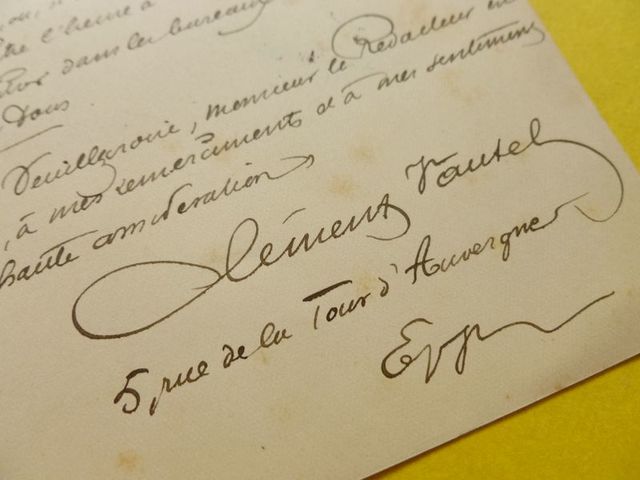 l'heure à
dans les bureaux
Vous
Veuillez croire, monsieur le Rédacteur en
, à mes remerciements et à mes sentiments
haute considération
Clément Vautel
5, rue de la Tour d'Auvergne